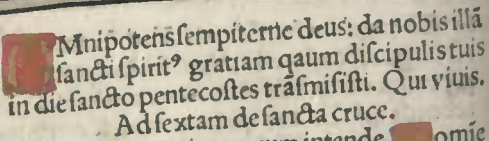 Mnipotens sempiterne deus: da nobis illã
sancti spirit⁹ gratiam qaum discipulis tuis
in die sancto pentecostes trãsmisisti. Qui viuis.
Ad sextam de sancta cruce.
intende omie